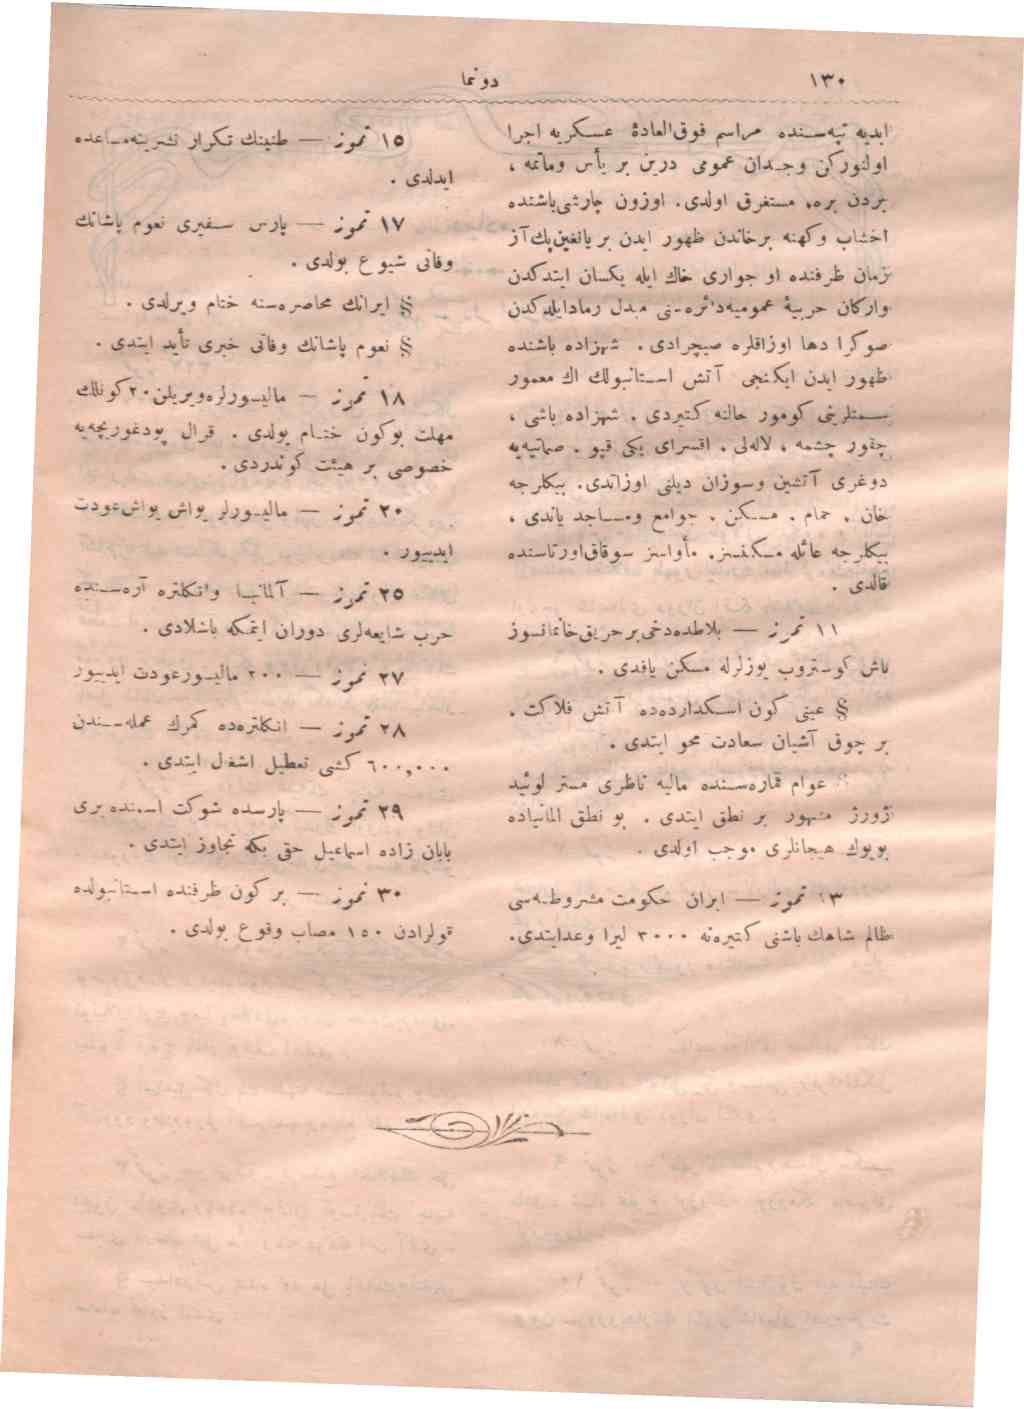 ١٣٠
دونما
ابديه تپه‌سنده مراسم فوق‌العادهٔ عسكريه اجرا
اولنوركن وجدان عمومی درين بر يأس وماتمه ،
بردن بره، مستغرق اولدی. اوزون چارشی‌باشنده
اخشاب وكهنه برخاندن ظهور ايدن بر يانغين‌پك آز
زمان ظرفنده او جواری خاك ايله يكسان ايتدكدن
واركان حربيهٔ عموميه‌دائره‌سنی مبدل رمادايلدكدن
صوكرا دها اوزاقلره صيچرادی . شهزاده باشنده
ظهور ايدن ايكنجی آتش استانبولك اك معمور
سمتلرينی كومور حالنه كتيردی . شهزاده باشی ،
چقور چشمه ، لاله‌لی . اقسرای يكی قپو . صماتيه‌يه
دوغری آتشين وسوزان ديلنی اوزاتدی. بيكلرجه
خان . حمام . مسكن . جوامع ومساجد ياندی ،
بيكلرجه عائله مسكنسز. مأواسز سوقاق‌اورتاسنده
قالدی .
١١ تموز — بلاطده‌دخی‌برحريق‌خانمانسوز
باش كوستروب يوزلرله مسكن ياقدی .
§ عينی كون اسكدارده‌ده آتش فلاكت .
بر چوق آشيان سعادت محو ايتدی .
§ عوام قماره‌سنده ماليه ناظری مستر لوئيد
ژورژ مشهور بر نطق ايتدی . بو نطق المانياده
بويوك هيجانلری موجب اولدی .
١٣ تموز — ايران حكومت مشروطه‌سی
ظالم شاهك باشنی كتيره‌نه ٣٠٠٠ ليرا وعدايتدی.
١٥ تموز — طنينك تكرار نشرينه‌مساعده
ايدلدی .
١٧ تموز — پارس سفيری نعوم پاشانك
وفاتی شيوع بولدی .
§ ايرانك محاصره‌سنه ختام ويرلدی .
§ نعوم پاشانك وفاتی خبری تأيد ايتدی .
١٨ تموز — ماليسورلره‌ويريلن٢٠كونلك
مهلت بوكون ختام بولدی . قرال پودغوريچه‌يه
خصوصی بر هيئت كوندردی .
٢٠ تموز — ماليسورلر يواش يواش‌عودت
ايدييور .
٢٥ تموز — آلمانيا وانكلتره آره‌سنده
حرب شايعه‌لری دوران ايتمكه باشلادی .
٢٧ تموز — ٢٠٠ ماليسورعودت ايدييور
٢٨ تموز — انكلتره‌ده كمرك عمله‌سندن
٦٠٠,٠٠٠ كشی تعطيل اشغل ايتدی .
٢٩ تموز — پارسده شوكت اسمنده بری
بابان زاده اسماعيل حقی بكه تجاوز ايتدی .
٣٠ تموز — بر كون ظرفنده استانبولده
قولرادن ١٥٠ مصاب وقوع بولدی .